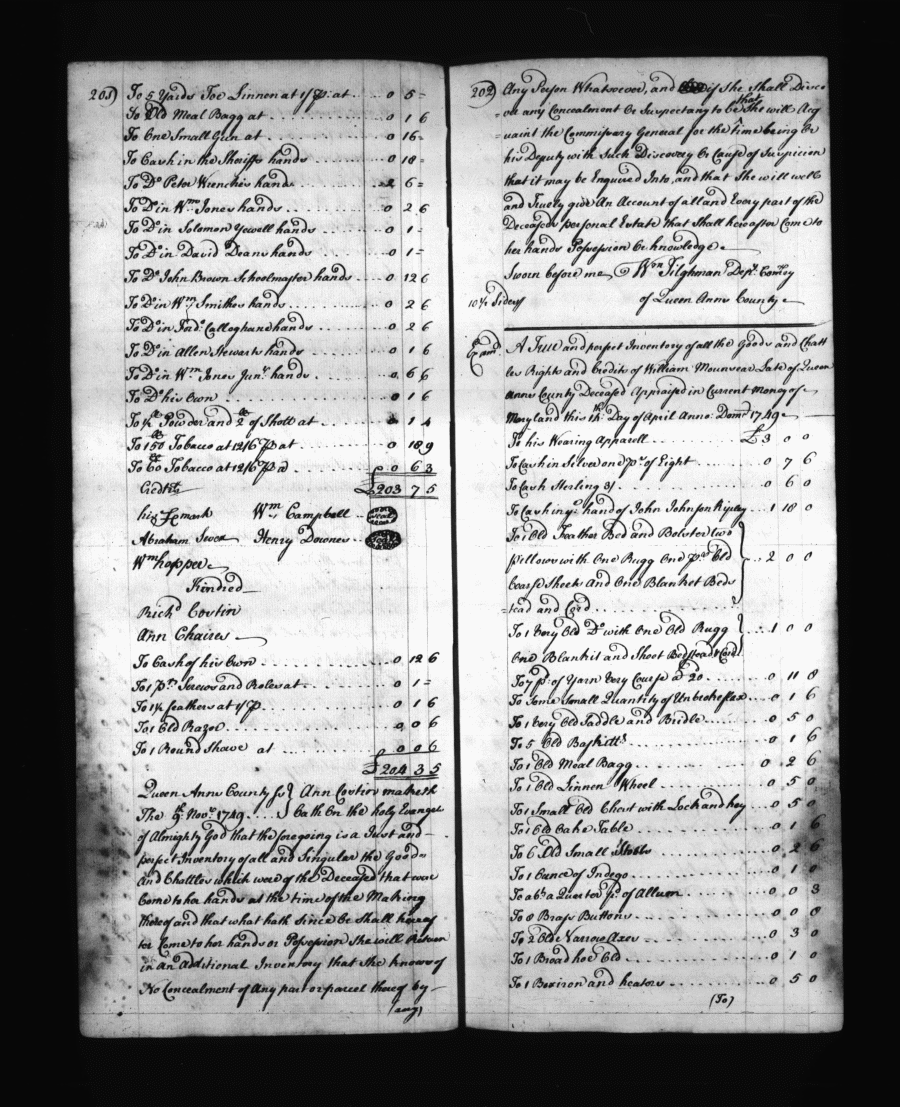 201
To 5 Yards Toe Linnen at 1/ ⅌ at . . . 0 5 =
To Old Meal Bagg at . . . 0 1 6
To One Small Gun at . . . 0 16 =
To Cash in the Sheriffs hands . . . 0 18 =
To Do Peter Wrenches hand . . . 2 6 =
To Do in Wm Jones hands . . . 0 2 6
To Do in Solomon Yewell hands . . . 0 1 =
To Do in David Deans hands . . . 0 1 =
To Do John Brown Schoolmaster hands . . . 0 12 6
To Do in Wm Smiths hands . . . 0 2 6
To Do in Jno Calloghane hands . . . 0 2 6
To Do in Allen Stewarts hands . . . 0 1 6
To Do in Wm Jones Junr hands . . . 0 6 6
To Do his Own . . . 0 1 6
To ½ lb Powder and 2 lb of Shott at . . . 0 1 4
To 150 lb Tobacco at 12/6 ⅌ at . . . 0 18 9
To 60 lb Tobacco at 12/6 ⅌ a . . . 0 6 3
Creditors £203 7 5
his mark Wm Campbell Seal
Abraham Henry Downes Seal
Wm hopper
Kindred
Richd Costin
Ann Chaires
To Cash of his Own . . . 0 12 6
To 1 Pr Screws and Roles at . . . 0 1 =
To 1½ feathers at 1/ ⅌ . . . 0 1 6
To 1 Old Razor . . . 0 0 6
To 1 Round Shave at . . . 0 0 6
£204 3 5
Queen Anns County Ss } Ann Costin maketh
The 9th Novr 1749 . . . } Oath On the holy Evangel
of Almighty God that the foregoing is a Just and
perfect Inventory of all and Singular the Goods
And Chattles which were of the Deceased that were
Come to her hands at the time of the Making
thereof and that what hath since Or Shall hereaf
ter Come to her hands or Possession She will Return
in An Additional Inventory that She knows of
No Concealment of Any part or parcel thereof by
(any)
202
Any Person Whatsoever, and if She Shall Disco
=ver any Concealment Or Suspect any to be that She will Acq
=uaint the Commissary General for the time being Or
his Deputy with Such Discovery Or Cause of Suspicion
that it may be Enquired Into, and that She will well
and Truely give An Account of all and Every part of the
Deceaseds personal Estate that Shall hereafter Come to
her hands Possession Or knowledge
Sworn before me Wm Tilghman Depty Comry
10½ Sides of Queen Anns County
Examd A True and perfect Inventory of all the Goods and Chatt
les Rights and Credits of William Mounseer Late of Queen
Anns County Deceased Appraised in Current Money of
Maryland this th Day of April Anno: Domi 1749
To his Wearing Apparell . . . £3 0 0
To Cash in Silver one Ps of Eight . . . 0 7 6
To Cash Sterling 3/ . . . 0 6 0
To Cash in ye hand of John Johnson Ripley . . . 1 18 0
To 1 Old Feather Bed and Bolster two
pillows with One Rugg One Pr Old
Coarse Sheets and One Blanket Beds . . . 2 0 0
=tead and Cord . . .
To 1 Very Old Do with One Old Rugg . . . 1 0 0
One Blankit and Sheet Bedstead & Cord
To 7 ps of Yarn Very Course @ 20 . . . 0 11 8
To Some Small Quantity of Unbroke flax . . . 0 1 6
To 1 Very Old Saddle and Bridle . . . 0 5 0
To 5 Old Baskitts . . . 0 1 6
To 1 Old Meal Bagg . . . 0 2 6
To 1 Old Linnen Wheel . . . 0 5 0
To 1 Small Old Chest with Lock and key . . . 0 5 0
To 1 Old Oake Table . . . 0 1 6
To 6 Old Small . . . 0 2 6
To 1 Ounce of Indego . . . 0 1 0
To abt a Quarter Pd of Allum . . . 0 0 3
To 8 Brass Buttons . . . 0 0 8
To 2 Olde Narrow Axes . . . 0 3 0
To 1 Broad hoe Old . . . 0 1 0
To 1 Boxiron and heators . . . 0 5 0
(To)